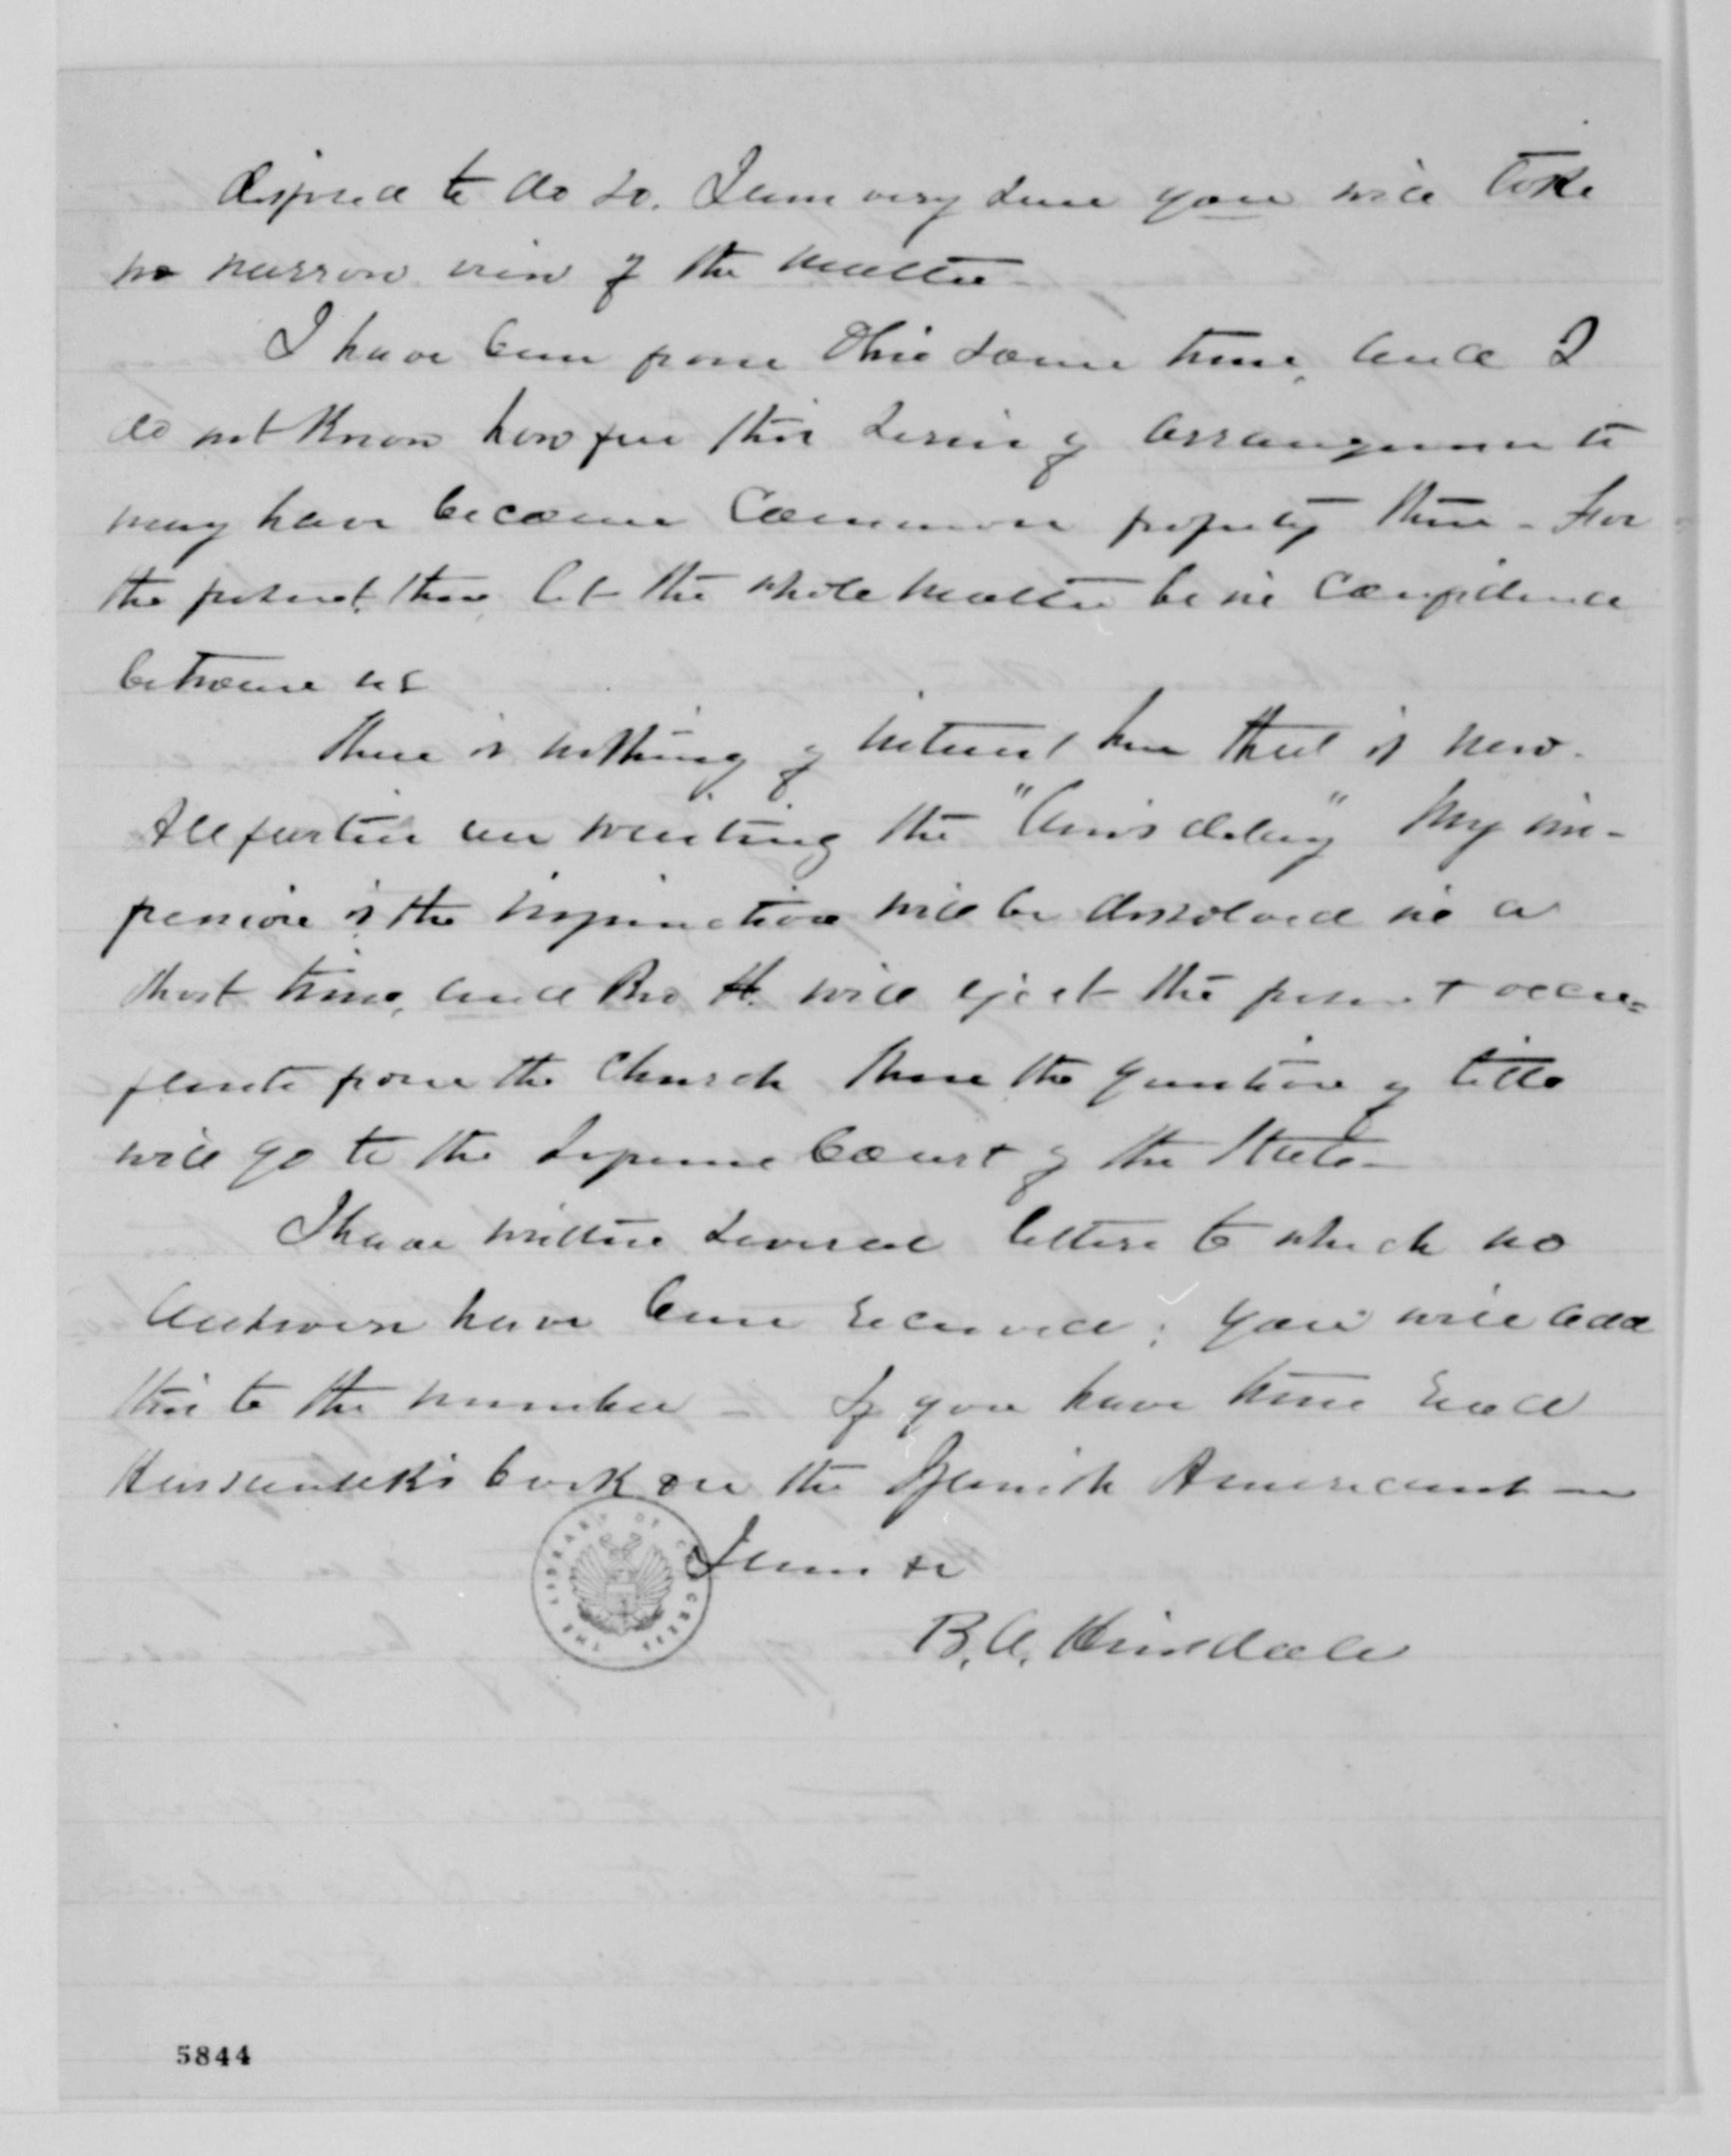 disposed to do so. I am very sure you will take
no narrow view of the matter
I have been from Ohio some time, and I
do not know how far this series of arrangements
may have become common property there - For
the present, then, let the whole matter be in confidence
between us
There is nothing of interest here that is new.
All parties are waiting the "law's delay" My im-
pression is the injunction will be dissolved in a
short time, and Bro H. will eject the present occu=
pants from the Church Then the question of title
will go to the Supreme Court of the State -
I have written several letters to which no
answers have been received; you will add
this to the number - If you have time read
book on the Spanish Americans -
I am &c
B. A. Hinsdale
THE LIBRARY OF CONGRESS
5844